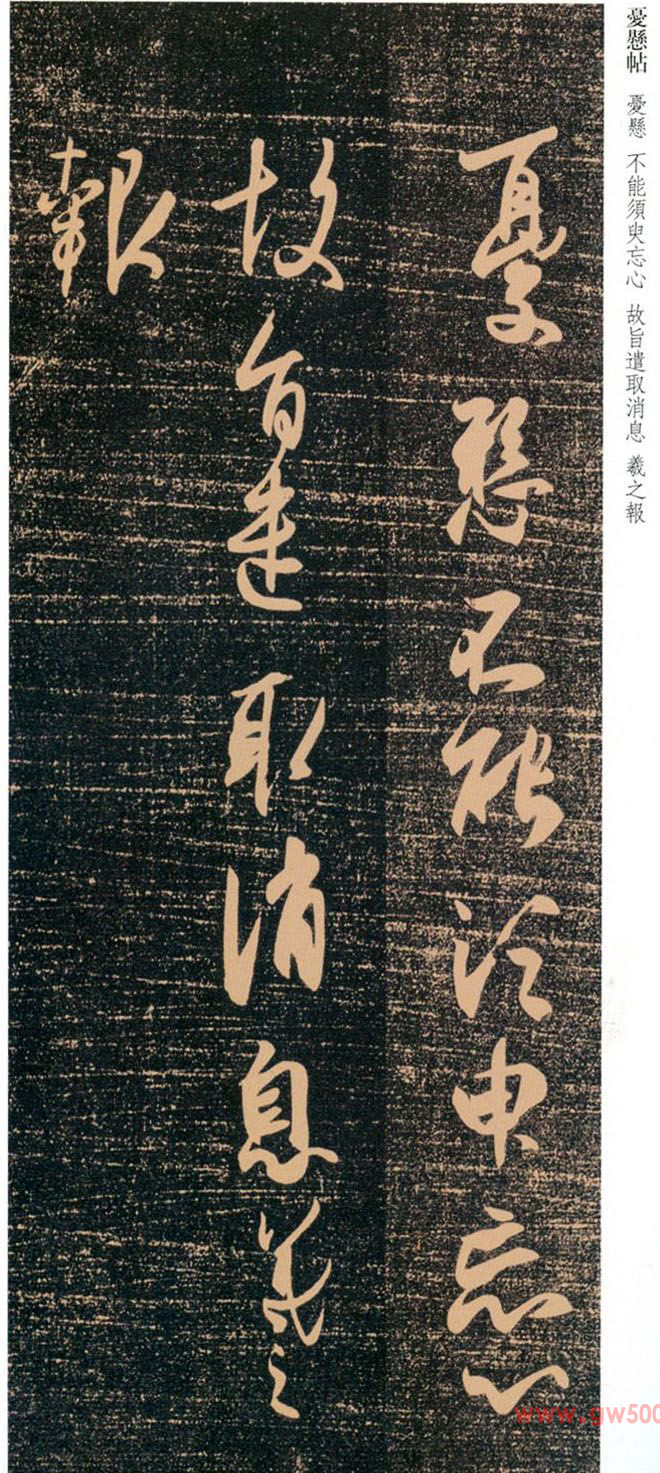 憂懸帖 憂懸 不能須臾忘心 故旨遣取消息 羲之報
憂懸不能須臾忘心
故旨遣取消息羲之
報
www.gw500